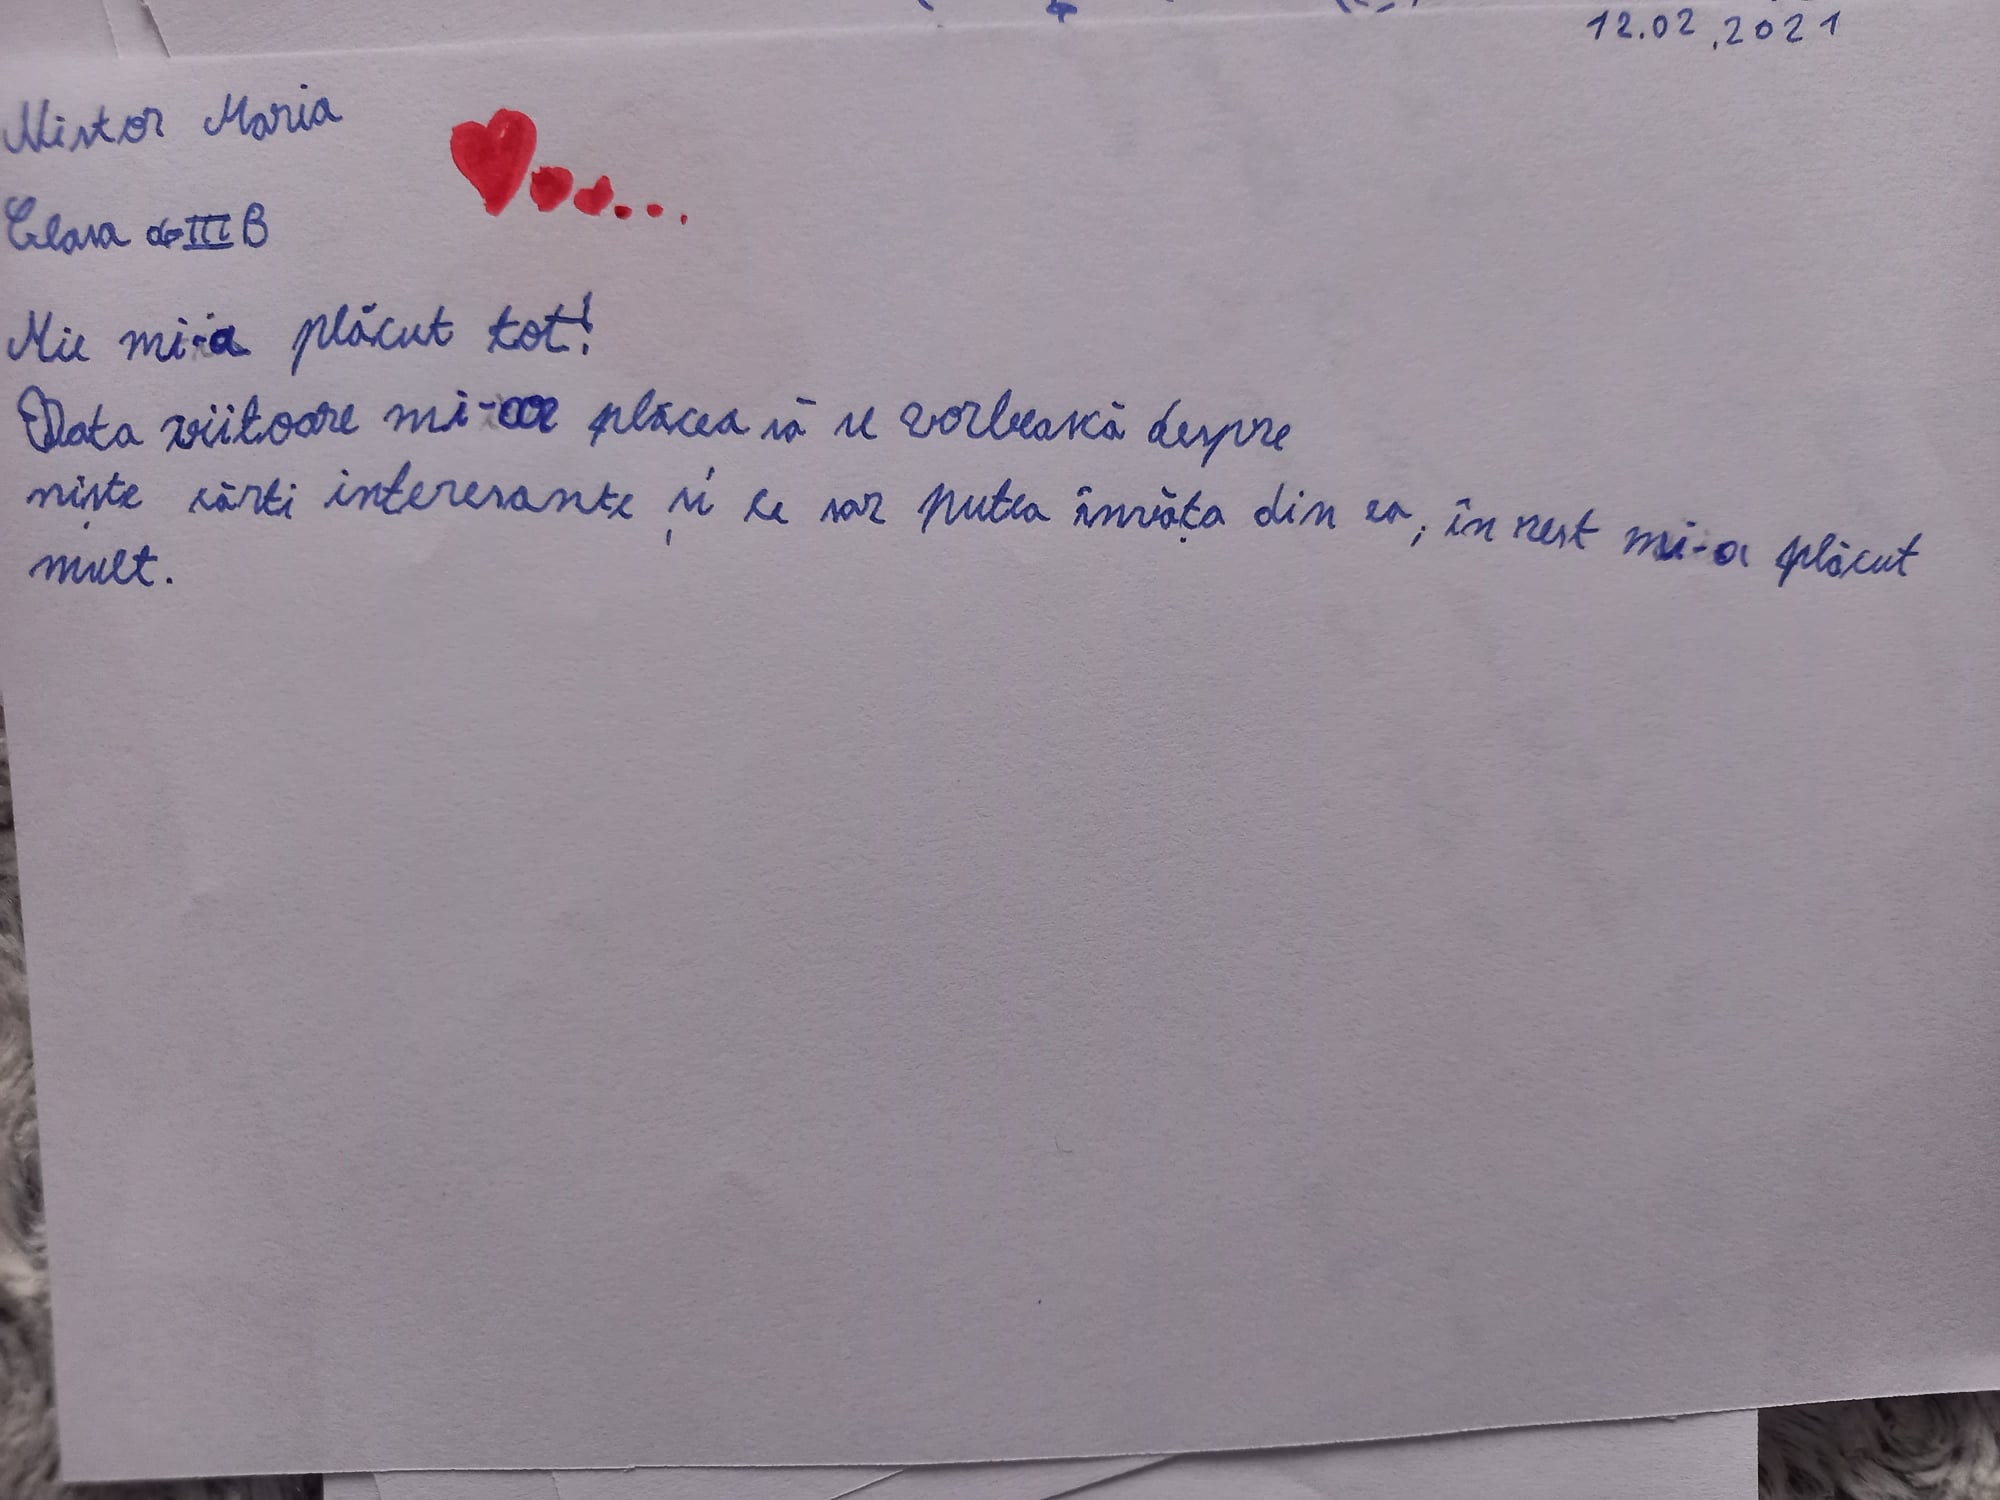 12.02.2021
Nistor Maria
Clasa a III B
Mie mi-a plăcut tot!
Data viitoare mi-ar plăcea să se vorbească despre
niște cărti interesante și ce sar putea învăța din ea, în rest mi-a plăcut
mult.